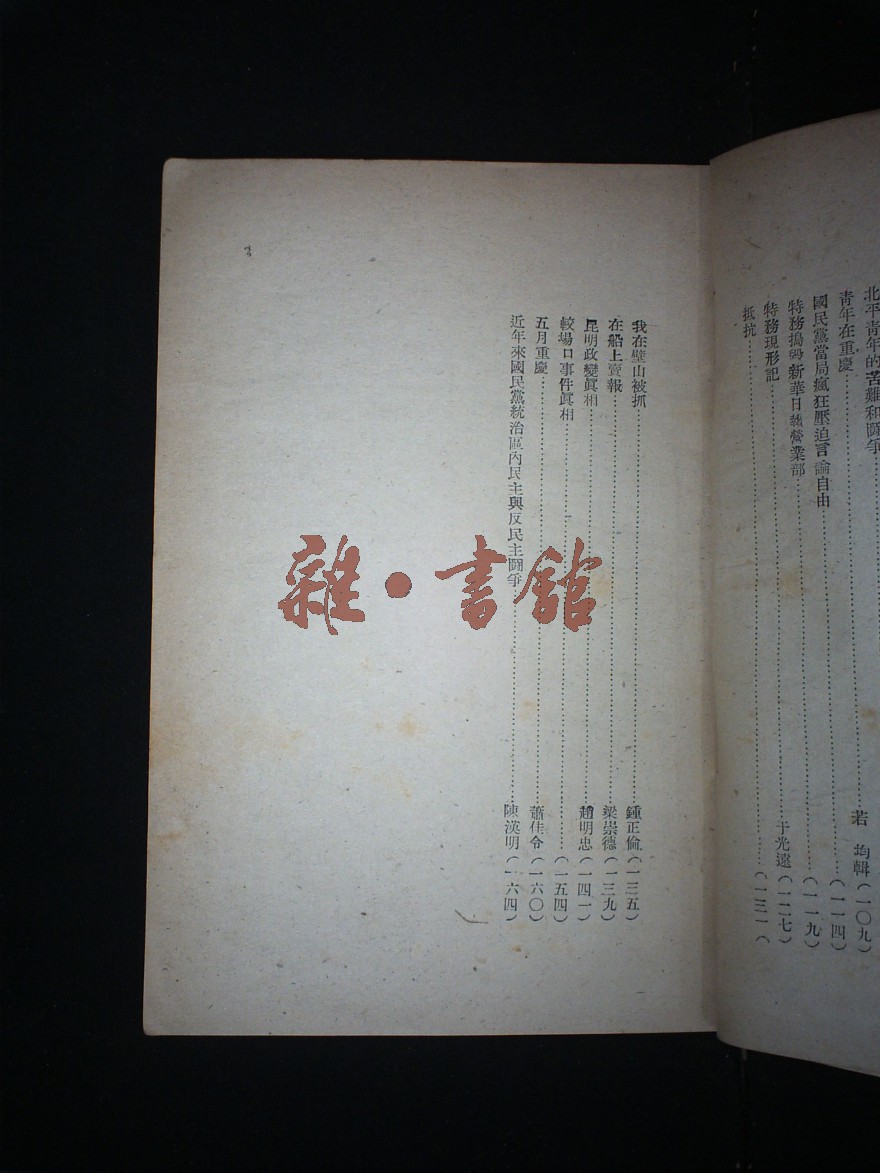 北平青年的苦難和鬪爭……若 均輯（一〇九）
青年在重慶……（一一四）
國民黨當局瘋狂壓迫言論自由……（一一九）
特務搗毀新華日報營業部……于光遠（一二七）
特務現形記
抵抗……（一三一（
我在壁山被抓……鍾正倫（一三五）
在船上賣報……梁崇德（一三九）
昆明政變眞相……趙明忠（一四一）
較場口事件眞相……（一五四）
五月重慶……蕭佳令（一六〇）
近年來國民黨統治區內民主與反民主鬪爭……陳漢明（一六四）
雜·書館